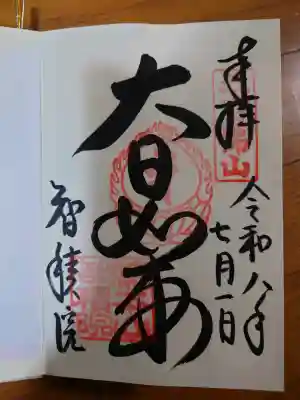 奉拝
令和八年
七月一日
大日如来
智積院